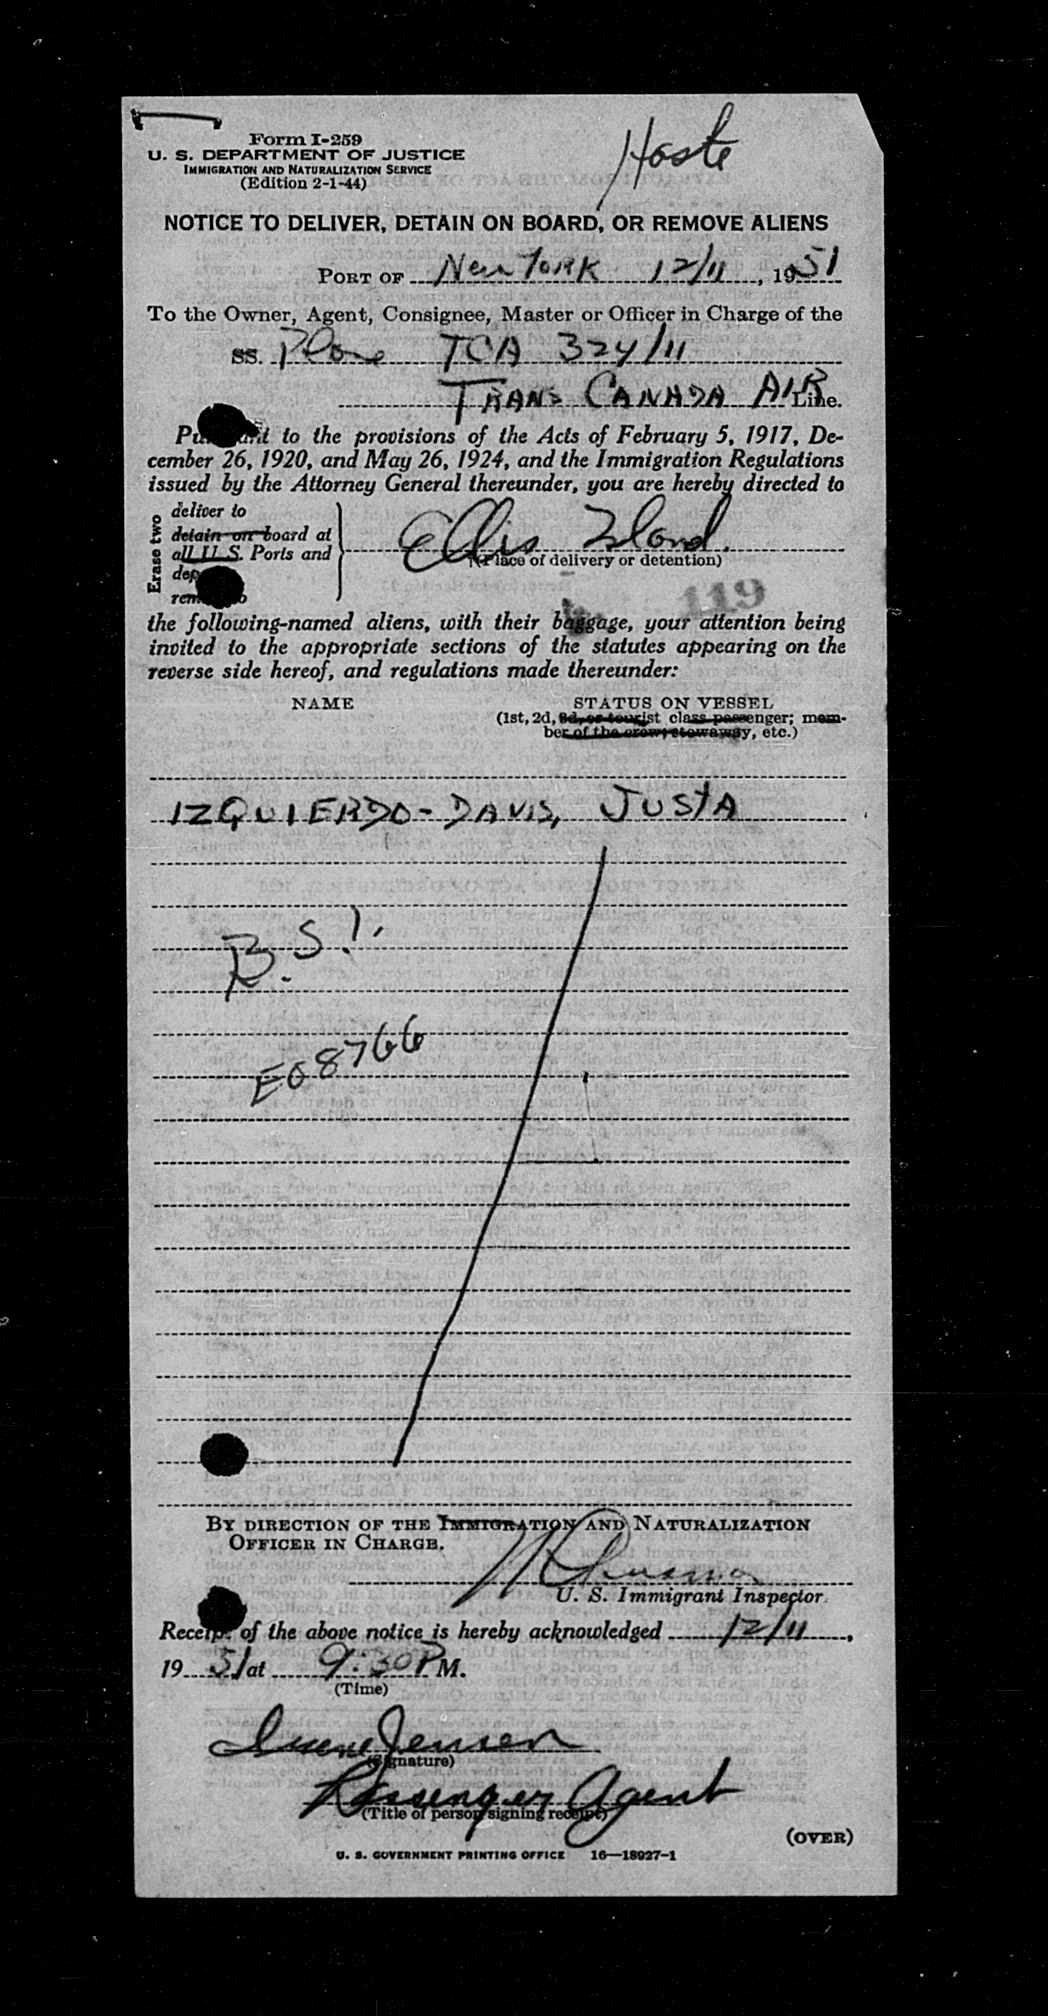 Form I-259
U. S. DEPARTMENT OF JUSTICE
IMMIGRATION AND NATURALIZATION SERVICE
(Edition 2-1-44)
Haste
NOTICE TO DELIVER, DETAIN ON BOARD, OR REMOVE ALIENS
PORT OF New York 12/11, 1951
To the Owner, Agent, Consignee, Master or Officer in Charge of the
SS. Plane TCA 324/11
TRANS CANADA AIR Line.
to the provisions of the Acts of February 5, 1917, De-
cember 26, 1920, and May 26, 1924, and the Immigration Regulations
issued by the Attorney General thereunder, you are hereby directed to
Erase two
deliver to
detain on board at
all U. S. Ports and
Ellis Island.
(Place of delivery or detention)
119
the following-named aliens, with their baggage, your attention being
invited to the appropriate sections of the statutes appearing on the
reverse side hereof, and regulations made thereunder:
NAME STATUS ON VESSEL
(1st, 2d, 3d, or tourist class passenger; mem-
ber of the crew, stowaway, etc.)
IZQUIERDO-DAVIS, JUSTA
B.S.I.
E08766
BY DIRECTION OF THE IMMIGRATION AND NATURALIZATION
OFFICER IN CHARGE.
U. S. Immigrant Inspector.
Receipt of the above notice is hereby acknowledged 12/11,
1951 at 9:30 P M.
(Time)
Jensen
(Signature)
Passenger Agent
(Title of person signing receipt)
(OVER)
U. S. GOVERNMENT PRINTING OFFICE 16—18927-1